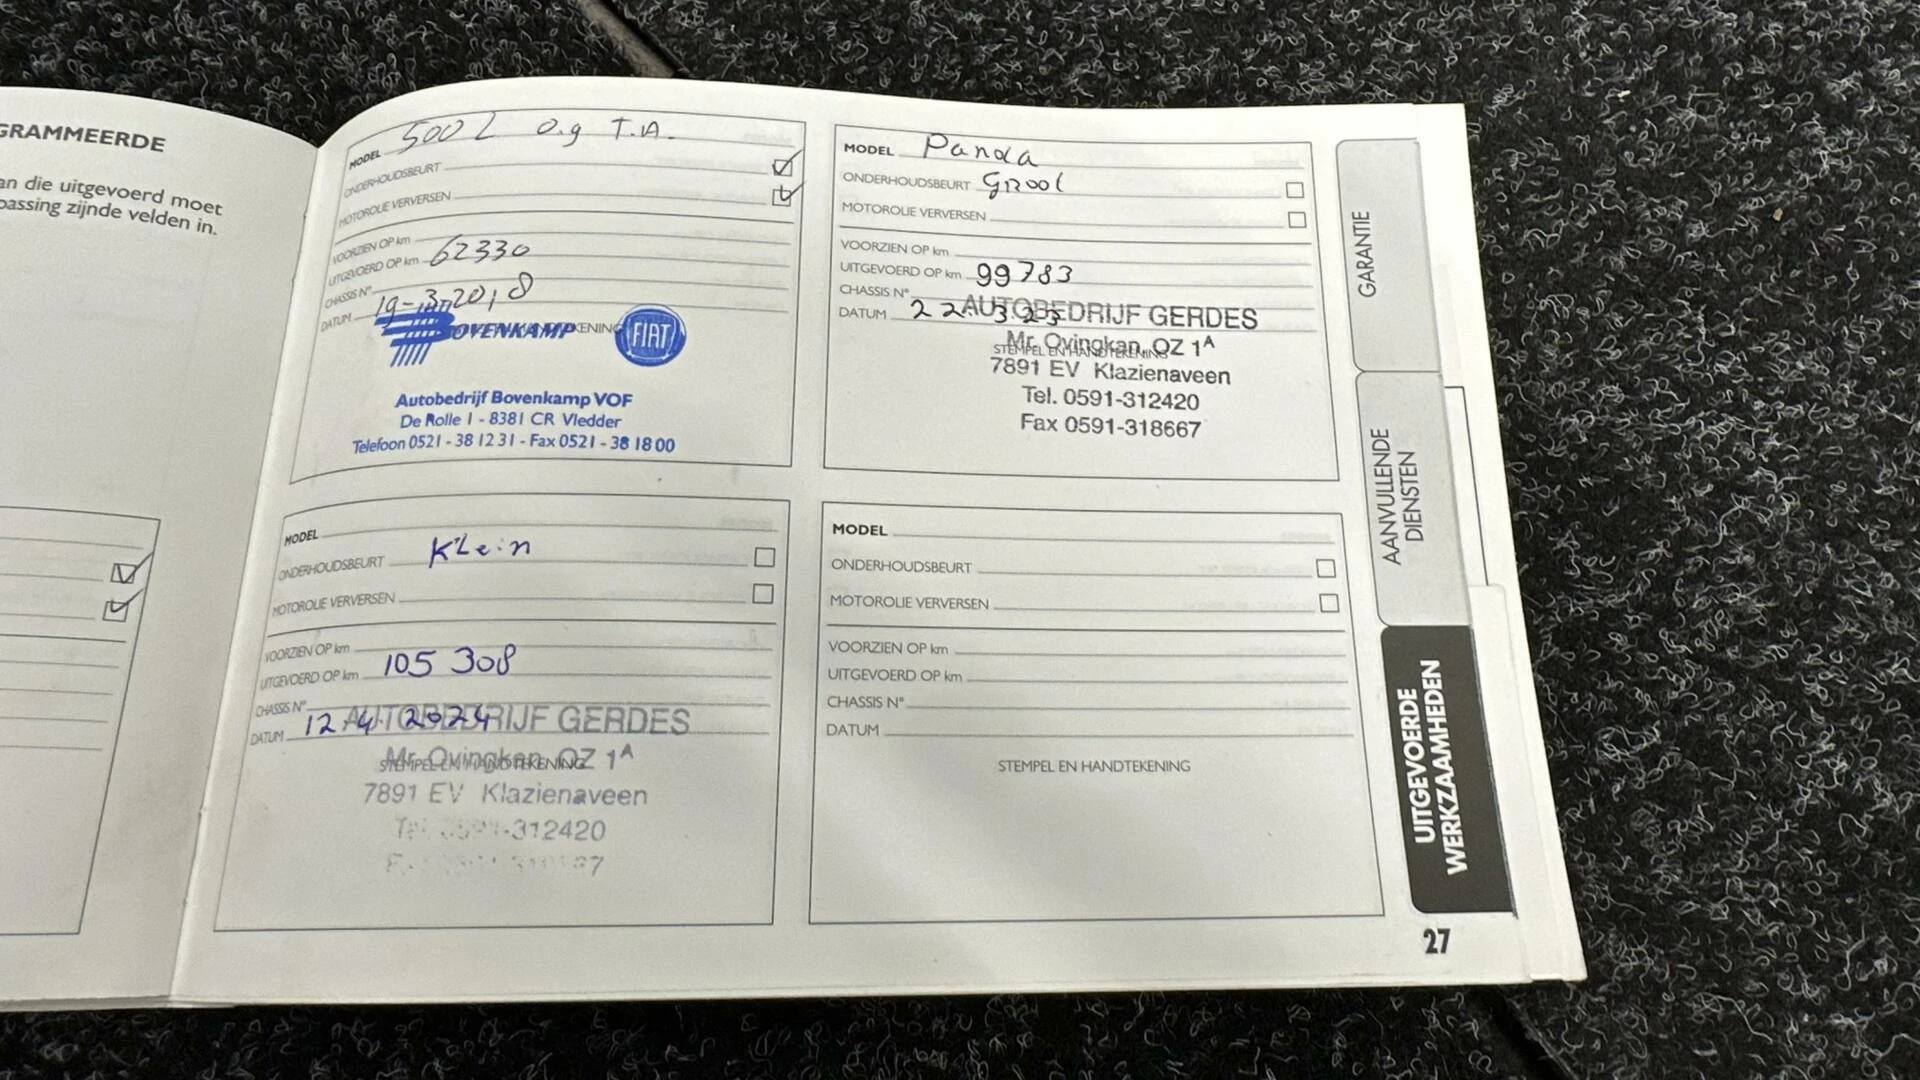 GRAMMEERDE
an die uitgevoerd moet
passing zijnde velden in.
MODEL 500 L 0.9 T.A.
ONDERHOUDSBEURT
MOTOROLIE VERVERSEN
VOORZIEN OP km
UITGEVOERD OP km 62330
CHASSIS N°
DATUM 19-3-2018
BOVENKAMP
FIAT
Autobedrijf Bovenkamp VOF
De Rolle 1 - 8381 CR Vledder
Telefoon 0521 - 38 12 31 - Fax 0521 - 38 18 00
MODEL Panda
ONDERHOUDSBEURT Groot
MOTOROLIE VERVERSEN
VOORZIEN OP km
UITGEVOERD OP km 99783
CHASSIS N°
DATUM 22.3.23
AUTOBEDRIJF GERDES
Mr. Ovingkan. OZ 1A
STEMPEL EN HANDTEKENING
7891 EV Klazienaveen
Tel. 0591-312420
Fax 0591-318667
MODEL
ONDERHOUDSBEURT Klein
MOTOROLIE VERVERSEN
VOORZIEN OP km
UITGEVOERD OP km 105 308
CHASSIS N°
DATUM 12.4.2024
AUTOBEDRIJF GERDES
Mr. Ovingkan. OZ 1A
STEMPEL EN HANDTEKENING
7891 EV Klazienaveen
Tel. 0591-312420
MODEL
ONDERHOUDSBEURT
MOTOROLIE VERVERSEN
VOORZIEN OP km
UITGEVOERD OP km
CHASSIS N°
DATUM
STEMPEL EN HANDTEKENING
GARANTIE
AANVULLENDE
DIENSTEN
UITGEVOERDE
WERKZAAMHEDEN
27